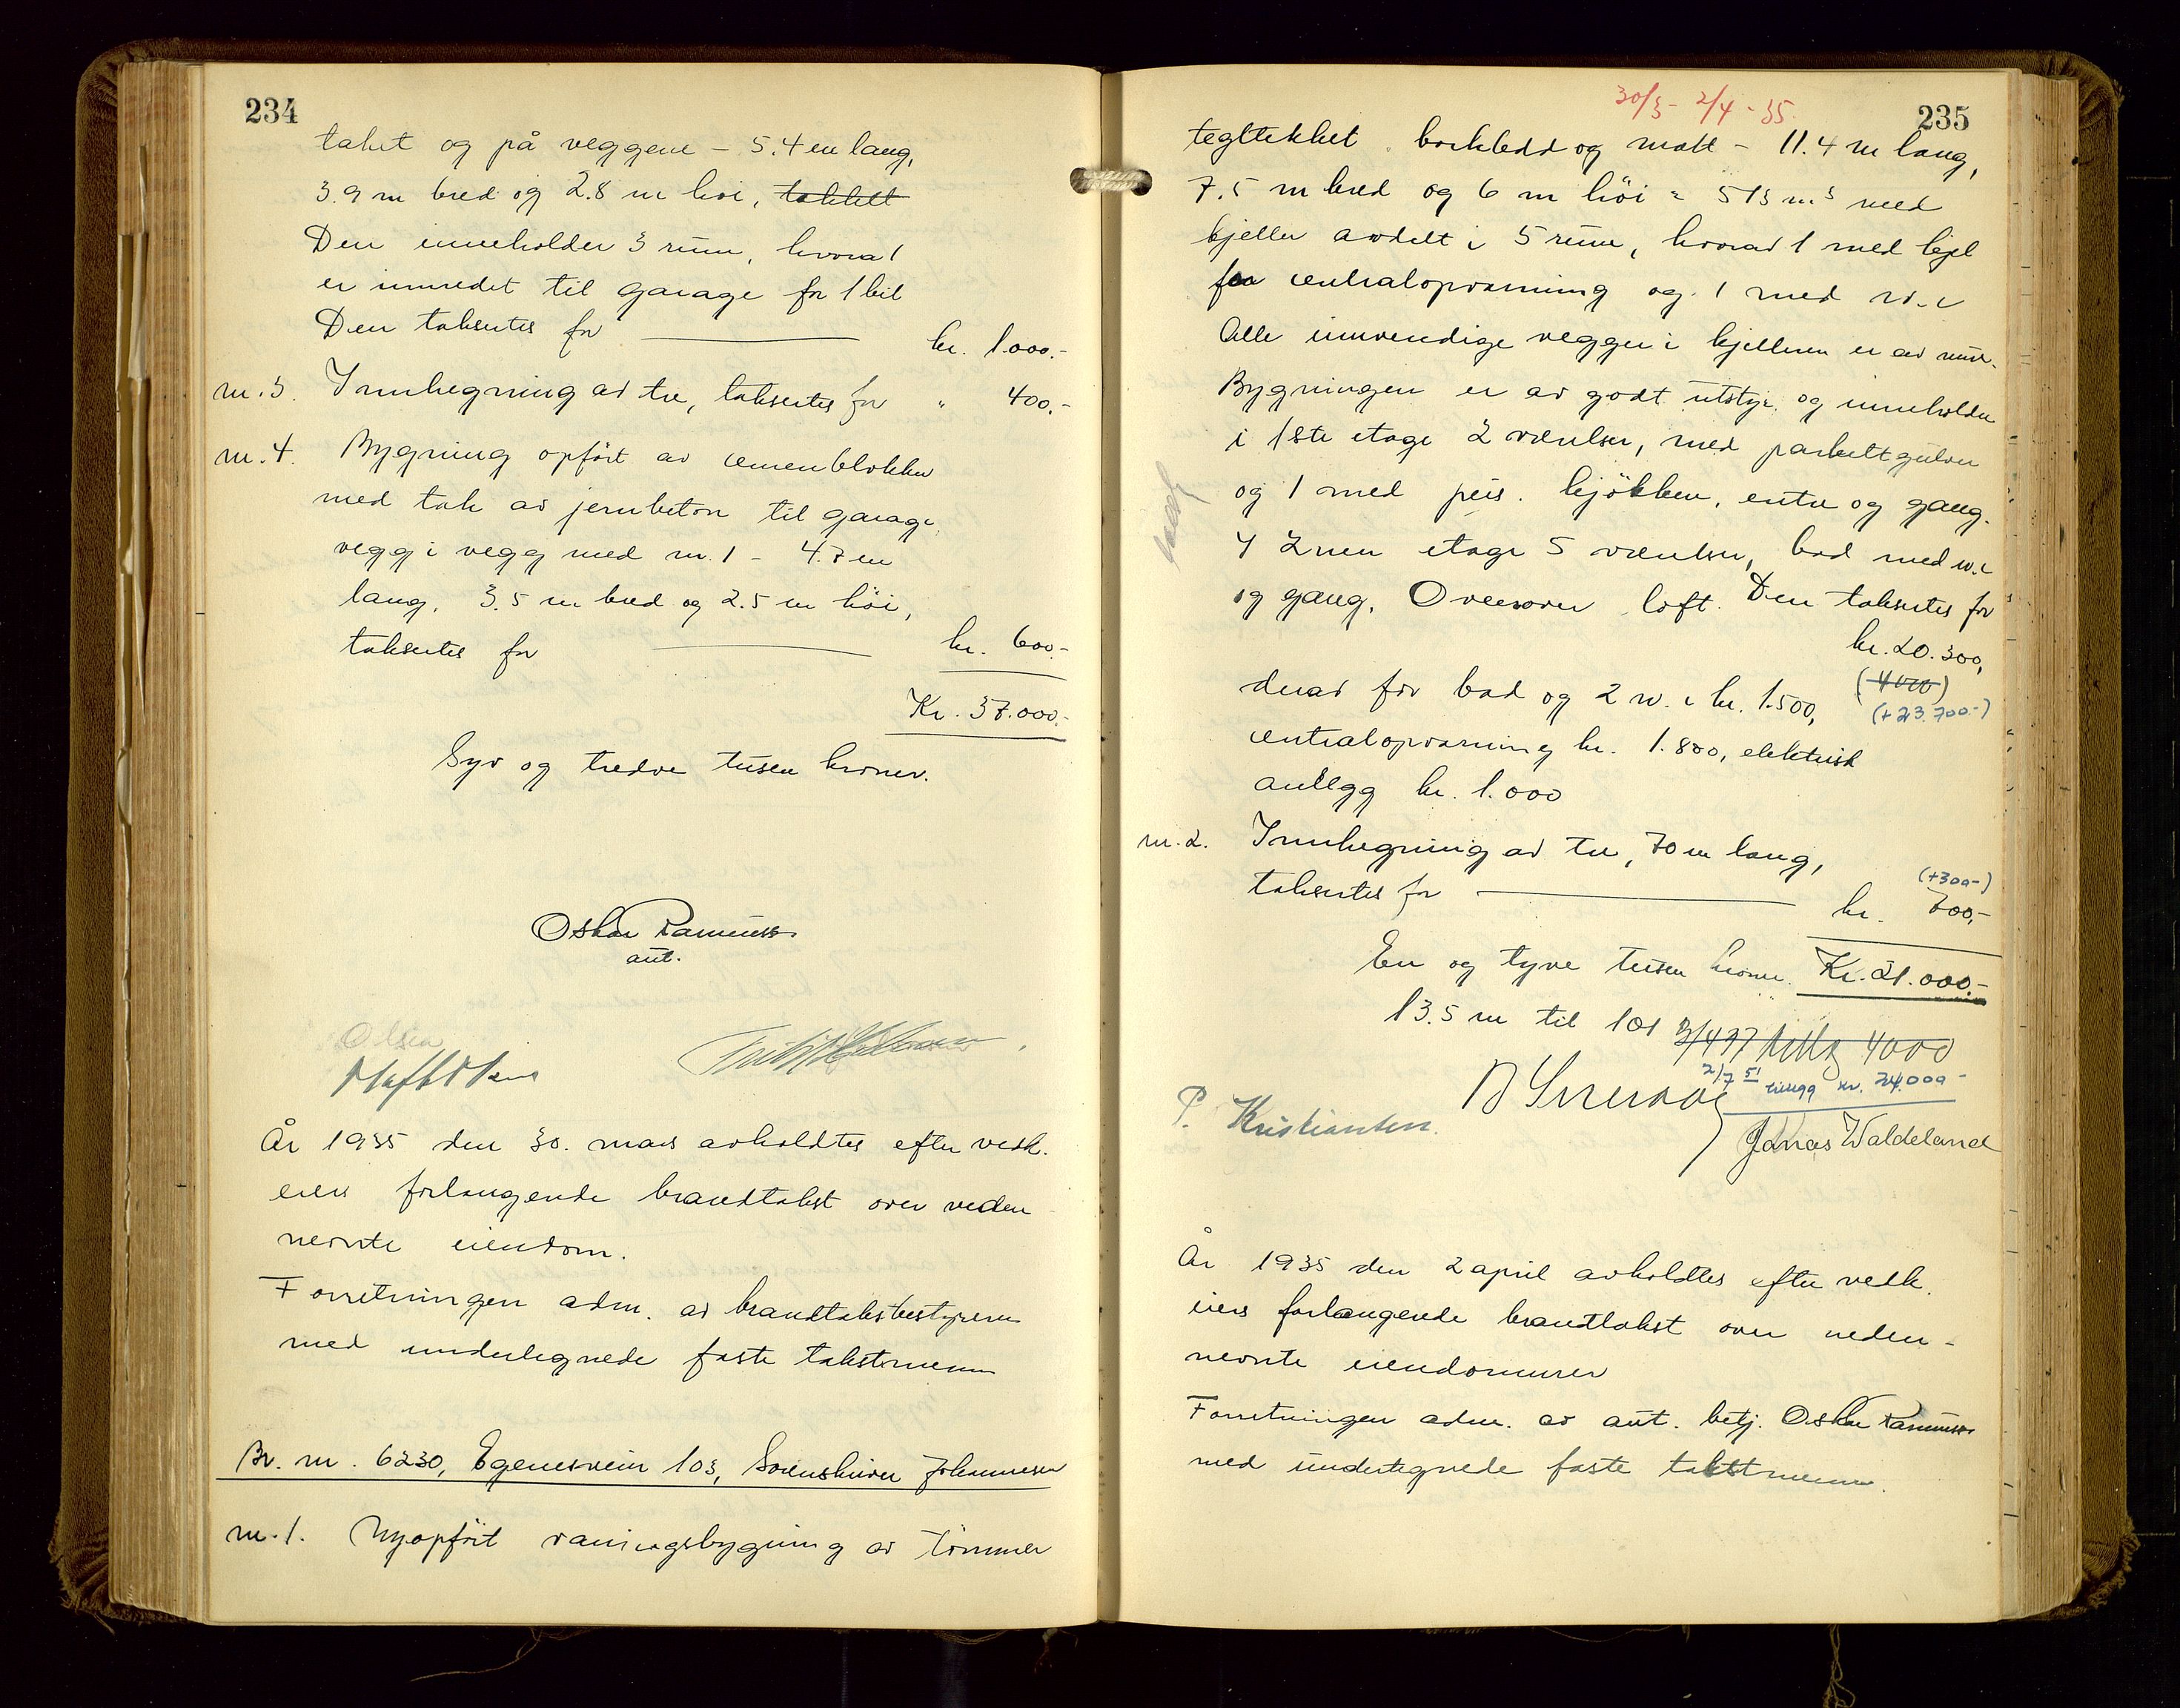 234
taket og på veggene - 5.4 m lang,
3.9 m bred og 2.8 m høi, takket
Den inneholder 3 rum, hvorav 1
er innredet til garage for 1 bil
Den takseres for kr. 1.000.-
nr. 3. Innhegning av tre, takseres for " 400.-
nr. 4. Bygning opført av cemenblokker
med tak av jernbeton til garage,
vegg i vegg med nr. 1 - 4.7 m
lang, 3.5 m bred og 2.5 m höi,
takseres for kr. 600.-
Kr. 37.000.-
Syv og tredve tusen kroner.
Oskar Rasmussen
aut.
Olsen
År 1935 den 30. mars avholdtes efter vedk.
eiers forlangende brandtakst over neden
nevnte eiendom.
Forretningen adm. av brandtakstbestyreren
med undertegnede faste takstmenn
Br. nr. 6230, Egenesveien 103, Sorenskriver Johannesen
nr. 1. Nyopført vaningsbygning av tømmer
30/3 - 2/4 - 35.
235
tegltekket bordkledd og malt - 11.4 m lang,
7.5 m bred og 6 m höi = 513 m³ med
kjeller avdelt i 5 rum, hvorav 1 med kjel
for centralopvarming og 1 med w.c
Alle innvendige vegger i kjelleren er av mur.
Bygningen er av godt utstyr og inneholder
i 1ste etage 2 værelser, med parkettgulver
og 1 med peis. kjökken, entre og gang.
I 2nen etage 5 værelser, bad med w.c
og gang. Ovenover loft. Den takseres for
kr. 20.300,
(4000)
derav for bad og 2 w.c kr. 1.500, (+23.700.-)
centralopvarming kr. 1.800, elektrisk
anlegg kr. 1.000
nr. 2. Innhegning av tre, 70 m lang,
(+300-)
takseres for kr. 700,-
En og tyve tusen kroner. Kr. 21.000.-
13.5 m til 101 3/4 37 tillegg 4000
2/7 51 tillegg kr. 24.000-
P. Kristiansen.
Jonas Waldeland
År 1935 den 2 april avholdtes efter vedk.
eiers forlangende brandtakst over neden-
nevnte eiendommer
Forretningen adm. av aut. betj. Oskar Rasmussen
med undertegnede faste takstmenn.